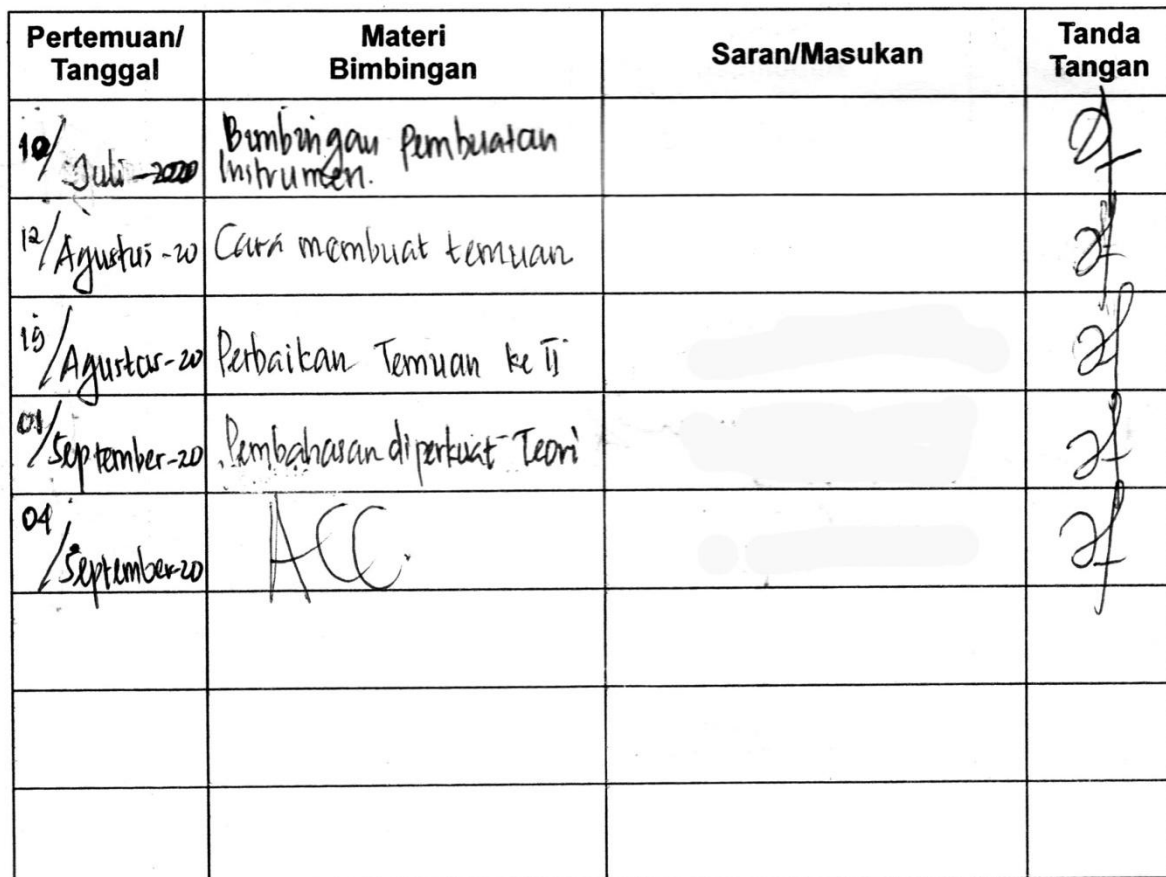 Pertemuan/
Tanggal
Materi
Bimbingan
Saran/Masukan
Tanda
Tangan
10/Juli-2020
Bimbingan Pembuatan
Instrumen.
12/Agustus-20
Cara membuat temuan
/Agustus-20
Perbaikan Temuan ke II
01/September-20
Pembahasan diperkuat Teori
04/September-20
ACC.